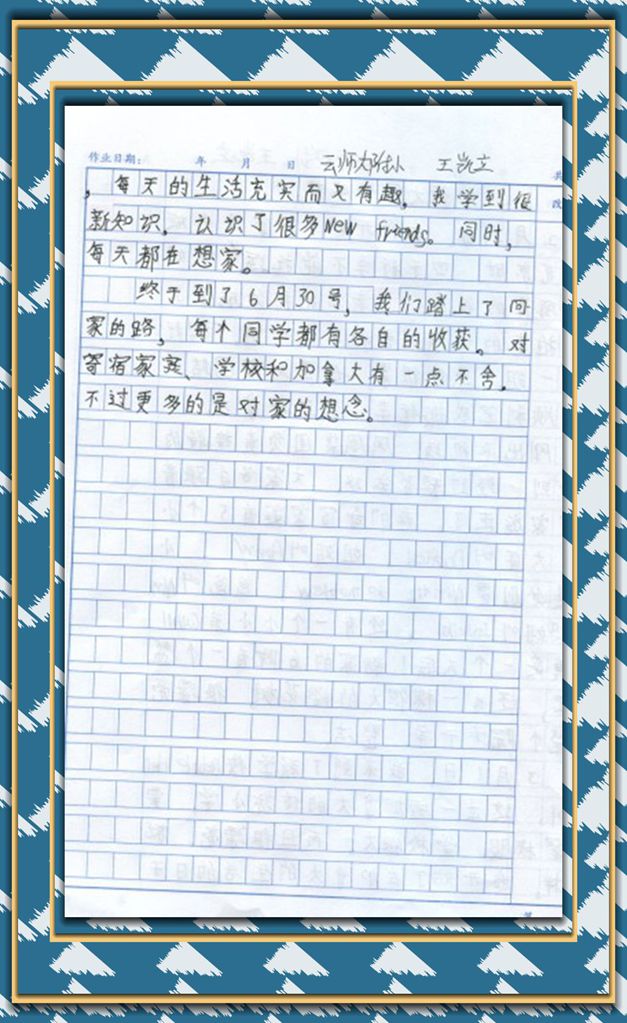 作业日期： 年 月 日 云师大附小 王凯立
，每天的生活充实而又有趣，我学到很
新知识，认识了很多new friends。同时，
每天都在想家。
终于到了6月30号，我们踏上了回
家的路，每个同学都有各自的收获。对
寄宿家庭、学校和加拿大有一点不舍，
不过更多的是对家的想念。